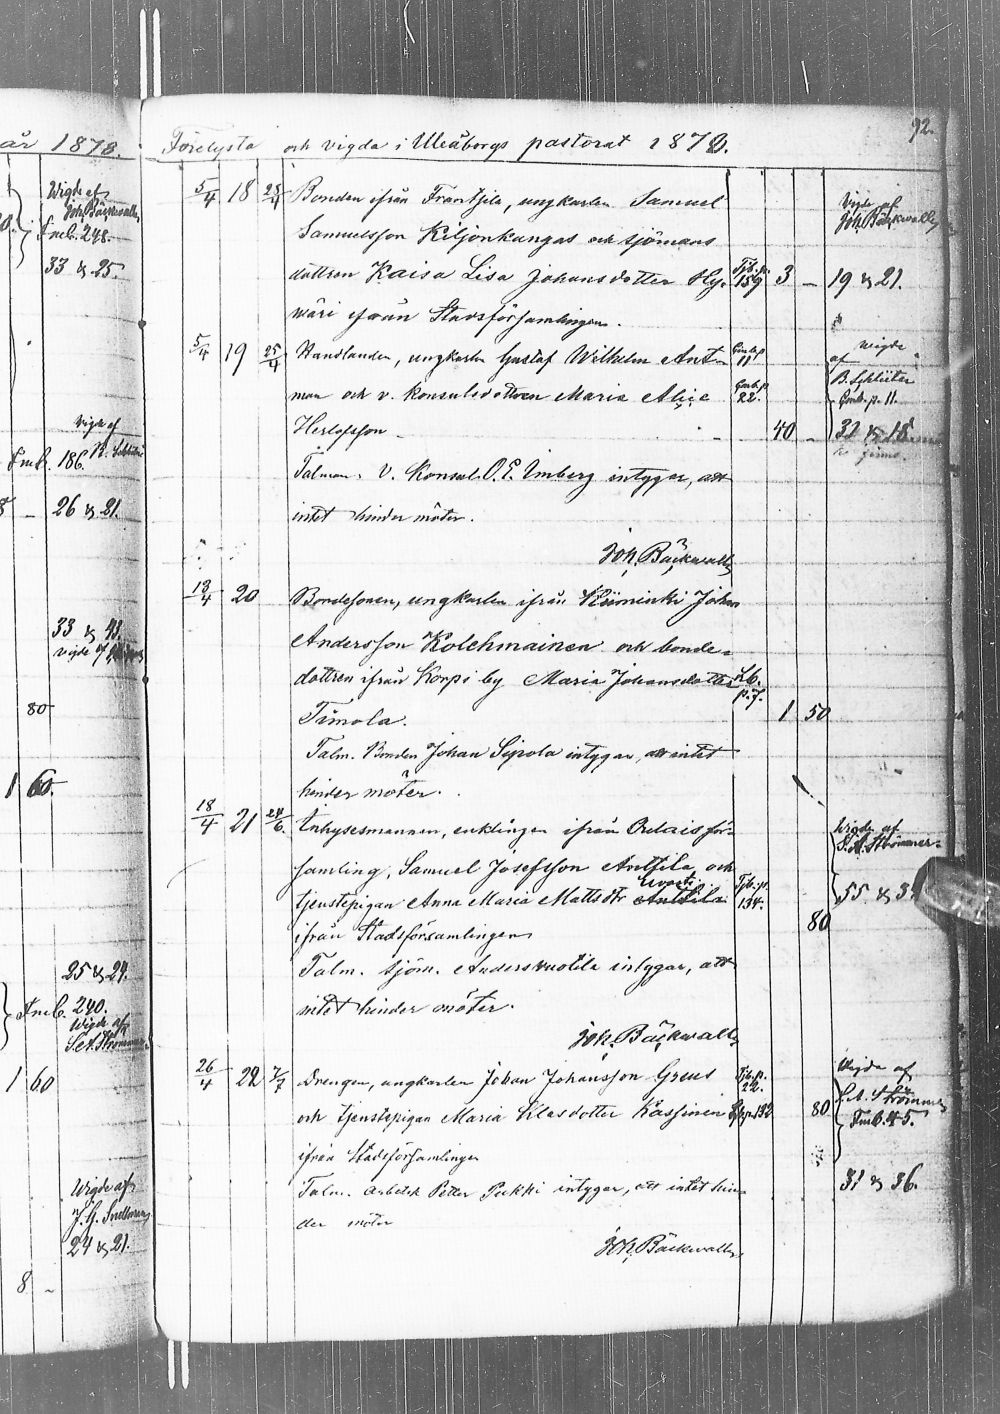 år 1878.
Wigde af
Joh. Bäckwall
Fmb. 248.
33 & 25.
Vigde af
Fmb. 186.
26 & 21.
33 & 43.
vigde af
80
1 60.
25 & 29.
Fmb. 240.
Wigde af
S. A. Strömmer
1 60
Wigde af
J. G. Snellman
24 & 21.
8 -
92.
Förelysta och vigda i Uleåborgs pastorat 1878.
5/4 18 25/4 Bonden ifrån Frantsila, ungkarlen Samuel
Vigde af
Joh. Bäckwall
Samuelsson Kiljonkangas och sjömans
dottren Kaisa Lisa Johansdotter Hy- Tjb. p. 159 3 - 19 & 21.
wäri ifrån Stadsförsamlingen.
5/4 19 25/4 Handlanden, ungkarlen Gustaf Wilhelm Ant-
man och v. konsulsdottren Maria Alice 22.
wigde
af
B. Schlüter
p. 11.
Herlofsson 40 - 32 & 18
Talman. V. Konsul O. E. Imberg intygar, att
intet hinder möter.
Joh. Bäckwall
13/4 20 Bondesonen, ungkarlen ifrån Kiiminki Johan
Andersson Kolehmainen och bonde-
dottren ifrån Korpi by Maria Johansdotter Lb. p. 7.
Timola. 1 50
Talm. Bonden Johan Sipola intygar, att intet
hinder möter.
18/4 21 24/6. Inhysesmannen, enklingen ifrån Oulais för-
Wigde af
S. A. Strömmer
samling, Samuel Josefsson Anttila och
tjenstepigan Anna Maria Mattsdtr Anttila Tjb. p. 134. 80
55 & 3
ifrån Stadsförsamlingen
Talm. Sjöm. Anders intygar, att
intet hinder möter.
Joh. Bäckwall
26/4 22 7/7 Drengen, ungkarlen Johan Johansson Greus Tjb. p. 22.
Wigda af
S. A. Strömmer
Fmb. 45.
och tjenstepigan Maria Klasdotter Kassinen 132 80
ifrån Stadsförsamlingen
Talm. arbetsk. Petter Pukki intygar, att intet hin- 31 & 36.
der möter
Joh. Bäckwall